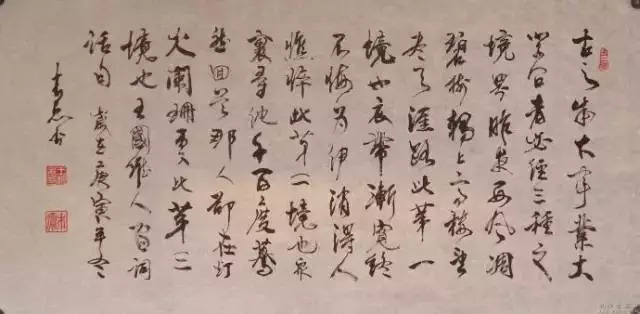 古之成大事業大
学问者必经三種之
境界昨夜西风凋
碧樹獨上高楼望
尽天涯路此第一
境也衣带漸寬終
不悔为伊消得人
憔悴此第二境也众
裏尋他千百度驀
然回首那人卻在灯
火阑珊處此第三
境也王國維人间词
话句 歲在庚寅年冬